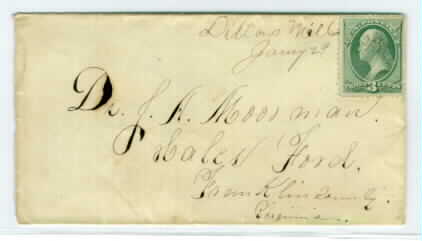 Dillons Mill
Jany 29
Dr. J. A. Moorman.
Hales Ford.
Franklin County.
Virginia.